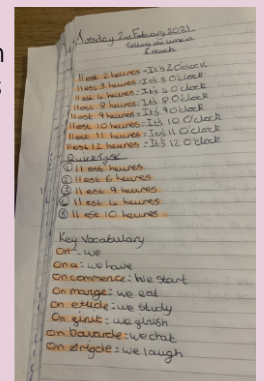 Tuesday 2nd February 2021
Telling the time in
French
Il est 2 heures - It's 2 O'clock
Il est 3 heures - It's 3 O'clock
Il est 4 heures - It's 4 O'clock
Il est 8 heures - It's 8 O'clock
Il est 9 heures - It's 9 O'clock
Il est 10 heures - It's 10 O'clock
Il est 11 heures - It's 11 O'clock
Il est 12 heures - It's 12 O'clock
Quick Task
① Il est heures
② Il est 6 heures
③ Il est 9 heures
④ Il est heures
⑤ Il est 10 heures
Key Vocabulary
On - we
On a : we have
On commence : We start
On mange : we eat
On etudie : we study
On finit : we finish
On bavarde : we chat
On : we laugh